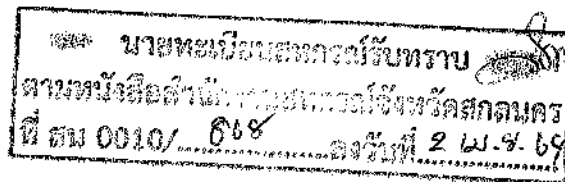 นายทะเบียนสหกรณ์รับทราบ
ตามหนังสือสำนักงานสหกรณ์จังหวัดสกลนคร
ที่ สน 0010/ ลงวันที่ 2 เม.ย. 69